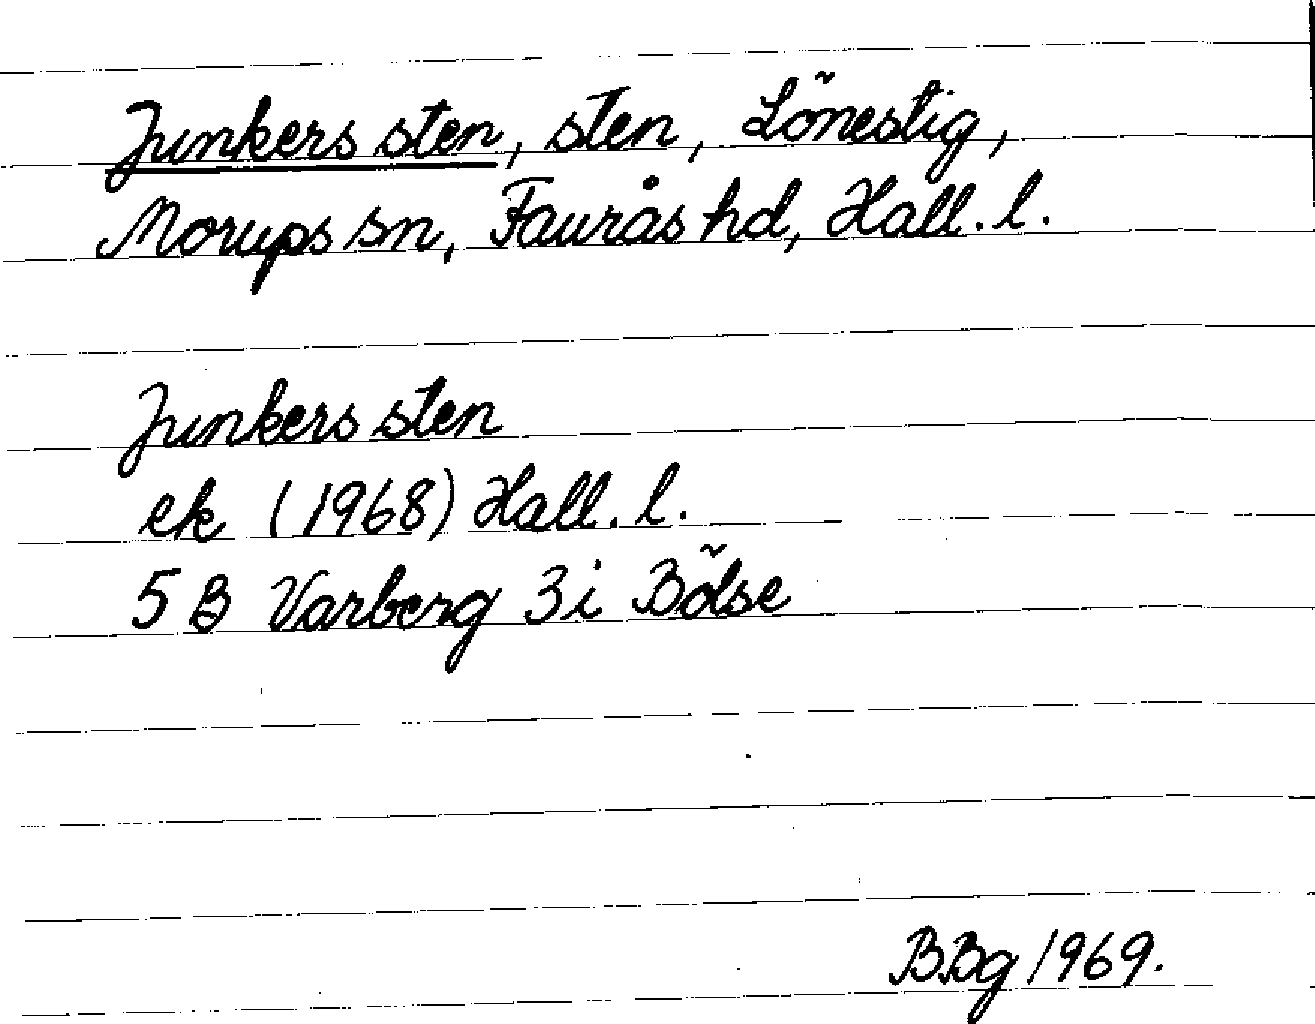 Junkers sten, sten, Lönestig,
Morups sn, Faurås hd, Hall. l.
Junkers sten
ek (1968) Hall. l.
5 B Varberg 3i Bölse
BBg 1969.